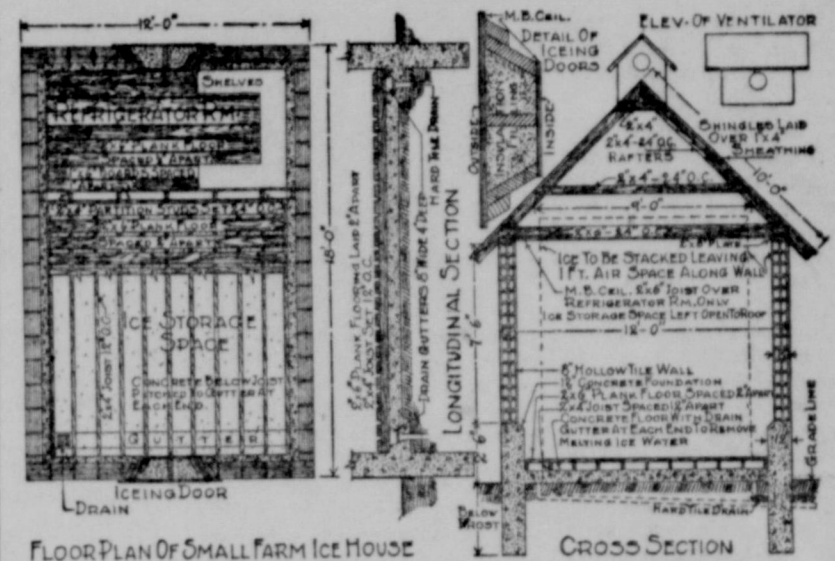 12'-0"
SHELVES
REFRIGERATOR RM.
PLANK FLOOR
SPACED APART
PARTITION STUDS SET 24" O.C.
PLANK FLOOR
SPACED APART
2x4 JOIST 12" O.C.
ICE STORAGE
SPACE
CONCRETE BELOW JOIST
PITCHED TO GUTTER AT
EACH END.
GUTTER
ICEING DOOR
DRAIN
18'-0"
FLOOR PLAN OF SMALL FARM ICE HOUSE
2"x6" PLANK FLOORING LAID 2" APART
2"x4" JOIST SET 12" O.C.
DRAIN GUTTERS 8" WIDE 4" DEEP
HARD TILE DRAIN
LONGITUDINAL SECTION
M.B. CEIL.
DETAIL OF
ICEING
DOORS
OUTSIDE
INSULATION
FILLING
INSIDE
ELEV. OF VENTILATOR
2"x4"
2"x4"-24" O.C.
RAFTERS
SHINGLES LAID
OVER 1"x4"
SHEATHING
10'-0"
2"x4"-24" O.C.
9'-0"
2"x6"-24" O.C.
PLATE
ICE TO BE STACKED LEAVING
1 FT. AIR SPACE ALONG WALL
M.B. CEIL. 2"x6" JOIST OVER
REFRIGERATOR RM. ONLY
ICE STORAGE SPACE LEFT OPEN TO ROOF
12'-0"
7'-6"
8" HOLLOW TILE WALL
12" CONCRETE FOUNDATION
2x6 PLANK FLOOR SPACED 2" APART
2x4 JOIST SPACED 12" APART
CONCRETE FLOOR WITH DRAIN
GUTTER AT EACH END TO REMOVE
MELTING ICE WATER
GRADE LINE
BELOW
FROST
HARD TILE DRAIN
CROSS SECTION